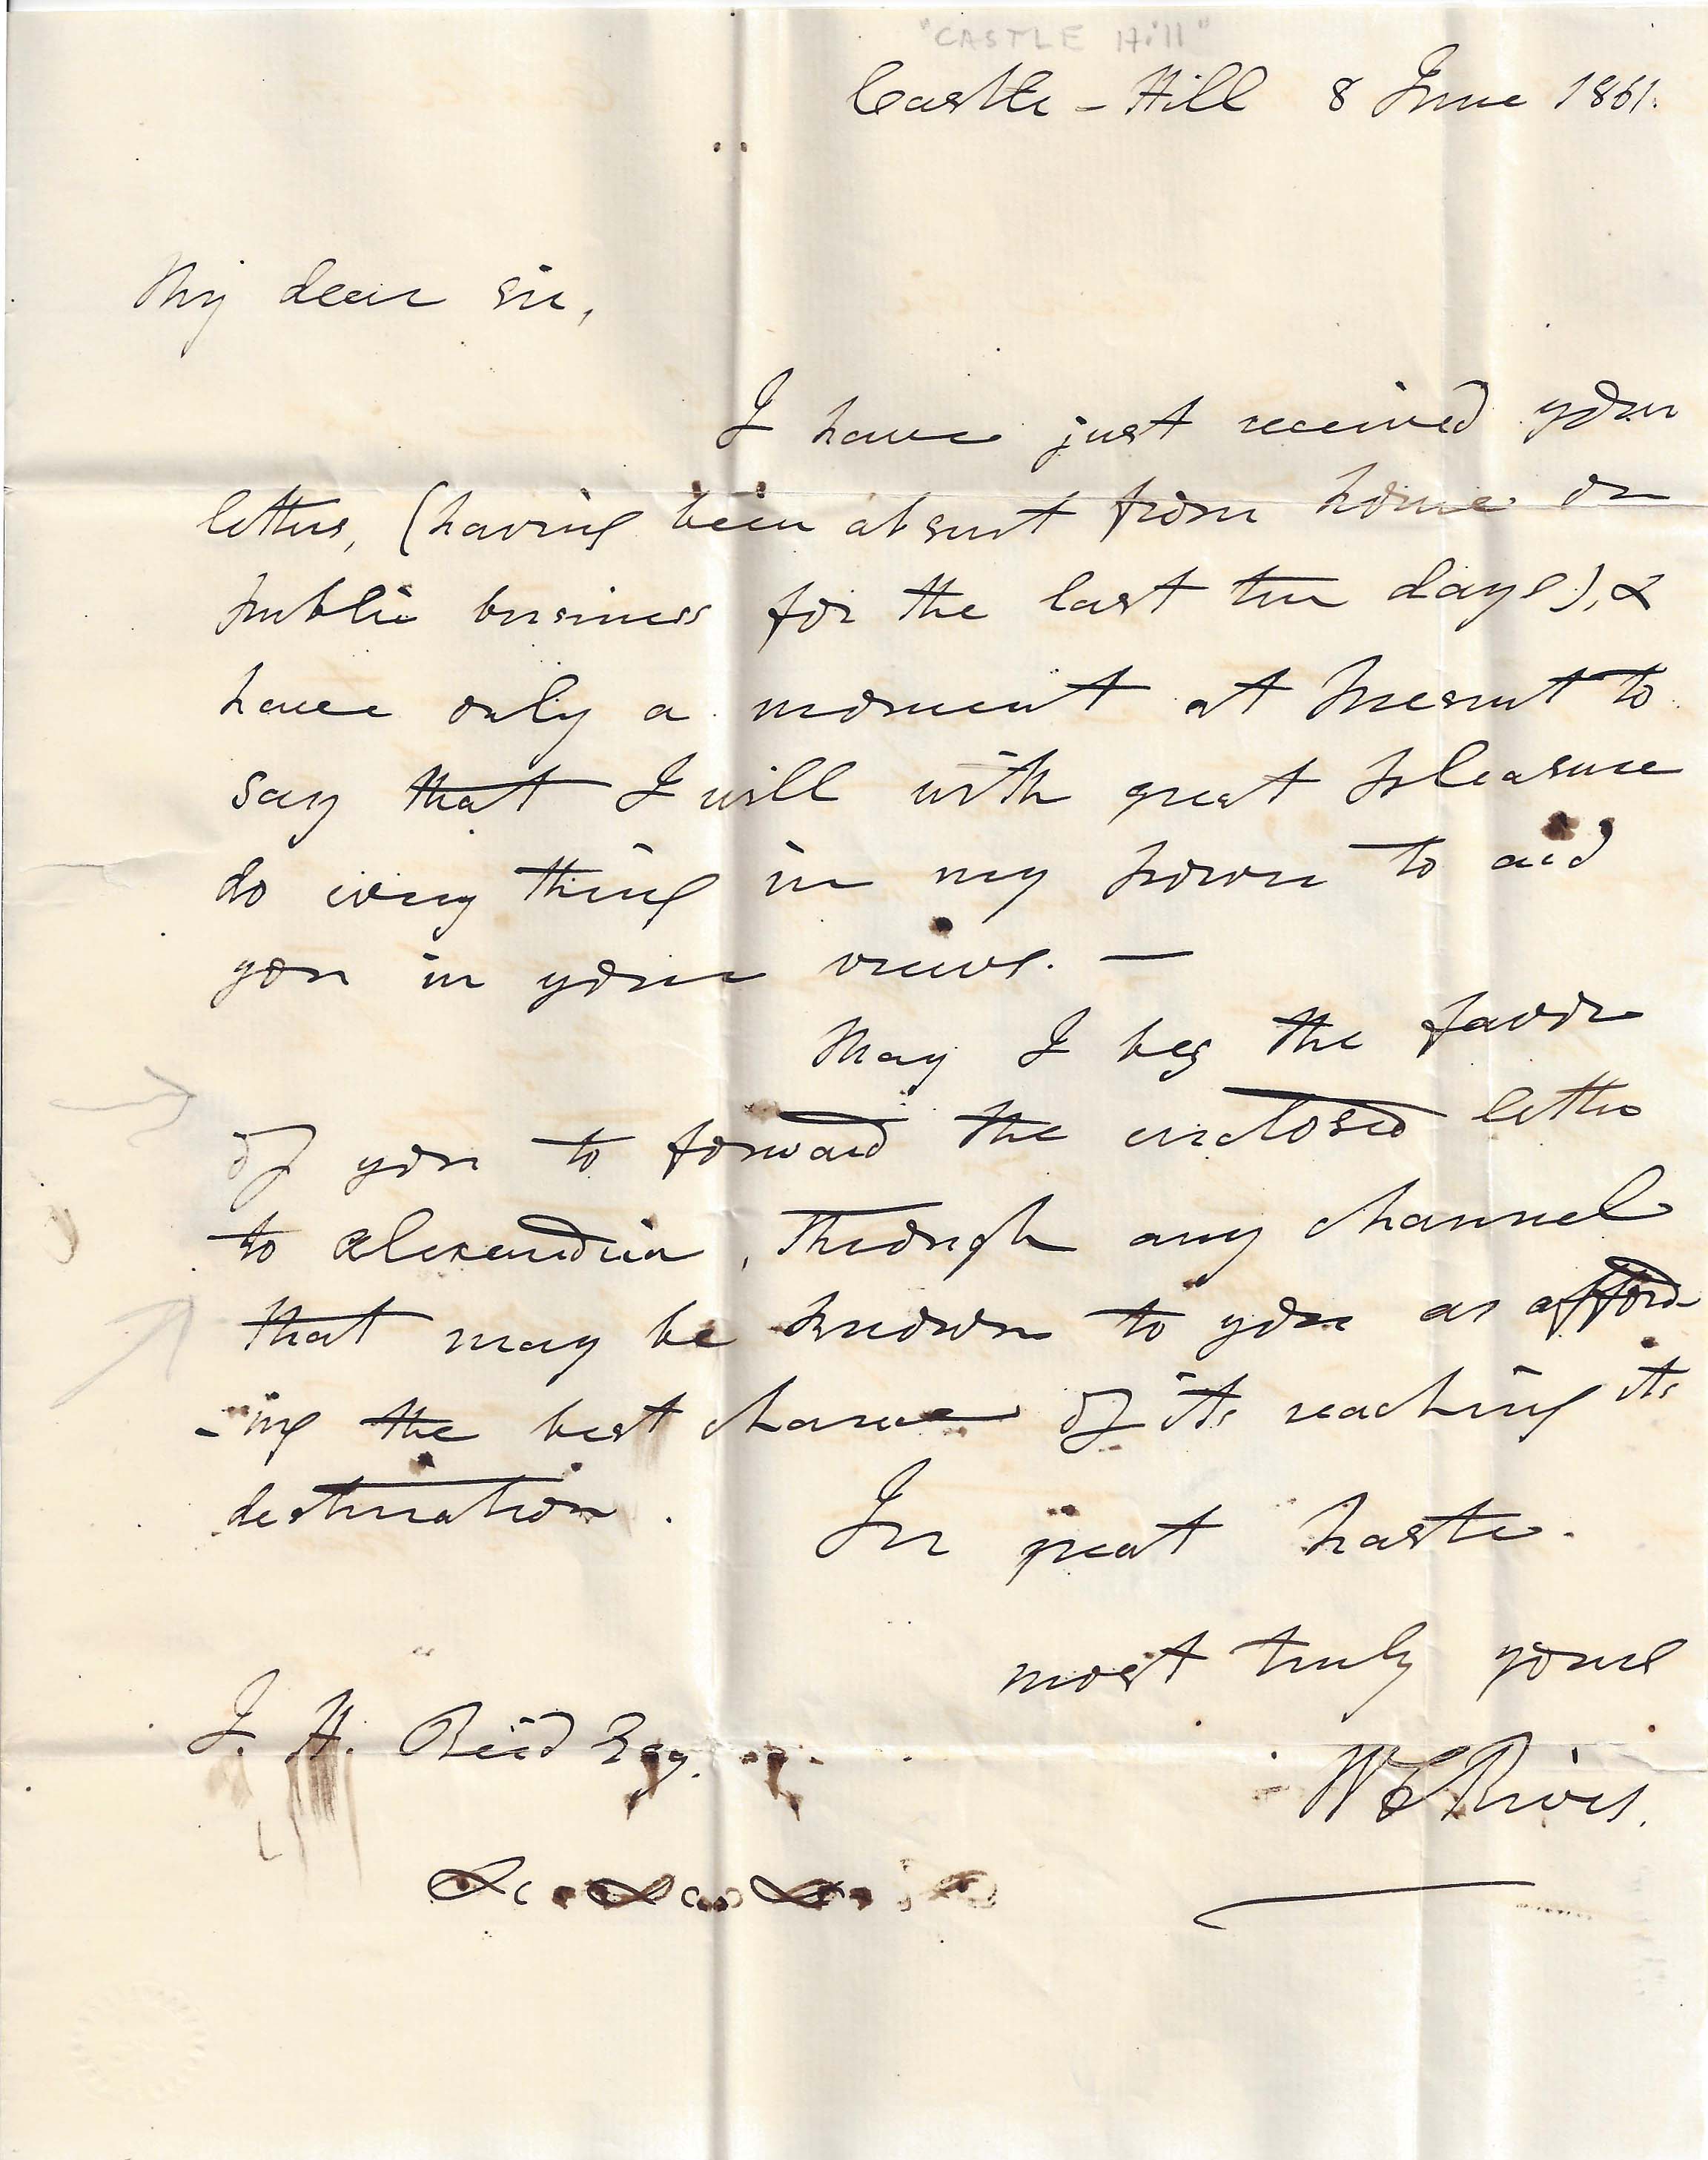 "CASTLE Hill"
Castle-Hill 8 June 1861.
My dear sir,
I have just received your
letters, (having been absent from home on
public business for the last ten days), &
have only a moment at present to
say that I will with great pleasure
do every thing in my power to aid
you in your views. —
May I beg the favor
of you to forward the enclosed letter
to Alexandria, through any channel
that may be known to you as afford-
-ing the best chance of its reaching its
destination. In great haste.
most truly yours
J. H. Reid Esq. W C Rives.
&c &c &c